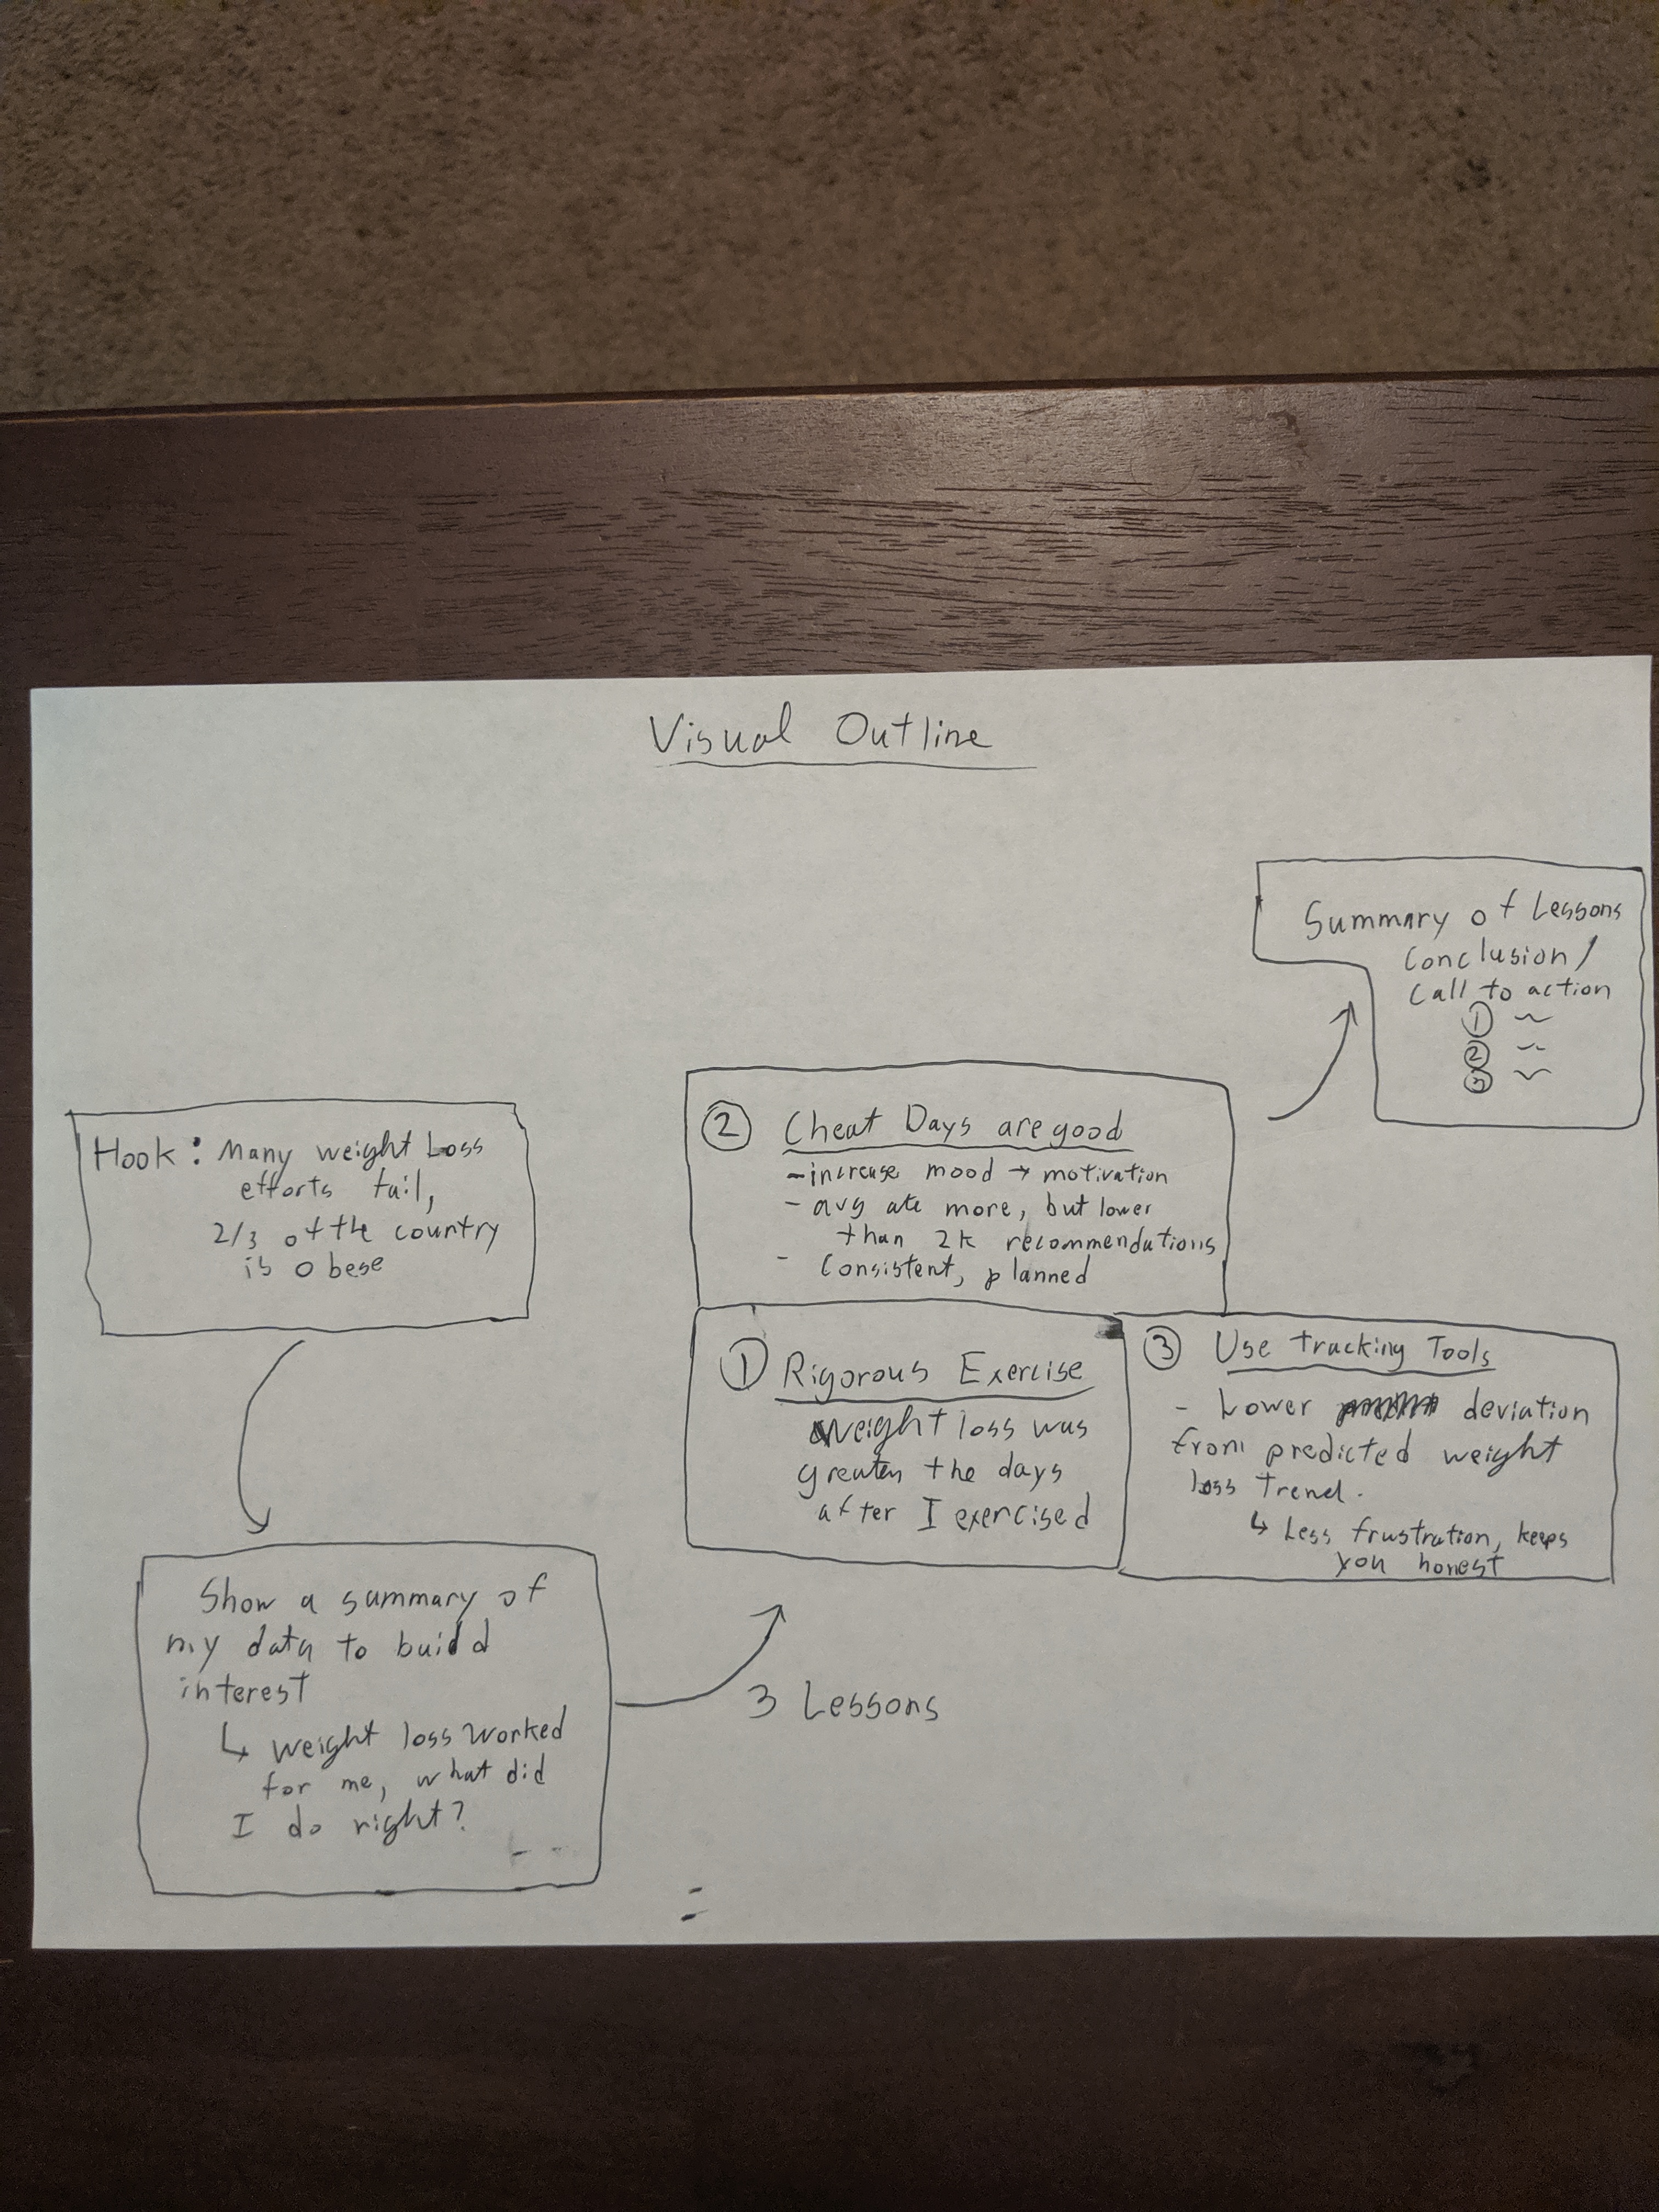 Visual Outline
Hook: Many weight Loss
efforts fail,
2/3 of the country
is obese
Show a summary of
my data to build
interest
↳ weight loss worked
for me, what did
I do right?
3 Lessons
① Rigorous Exercise
Weight loss was
greater the days
after I exercised
② Cheat Days are good
- increase mood → motivation
- avg ate more, but lower
than 2k recommendations
- Consistent, planned
③ Use Tracking Tools
- Lower deviation
from predicted weight
loss trend.
↳ Less frustration, keeps
you honest
Summary of Lessons
Conclusion/
Call to action
①
②
③